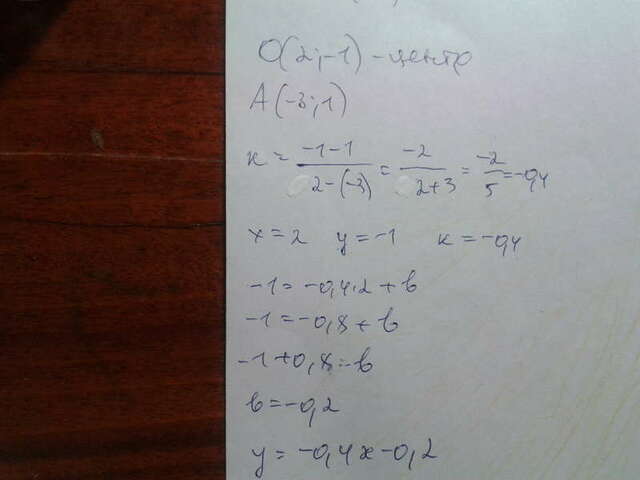 O(2;-1) - центр
A(-3;1)
к = -1-1 / 2-(-3) = -2 / 2+3 = -2 / 5 = -0,4
x=2 y=-1 к=-0,4
-1=-0,4·2+в
-1=-0,8+в
-1+0,8=в
в=-0,2
y=-0,4x-0,2